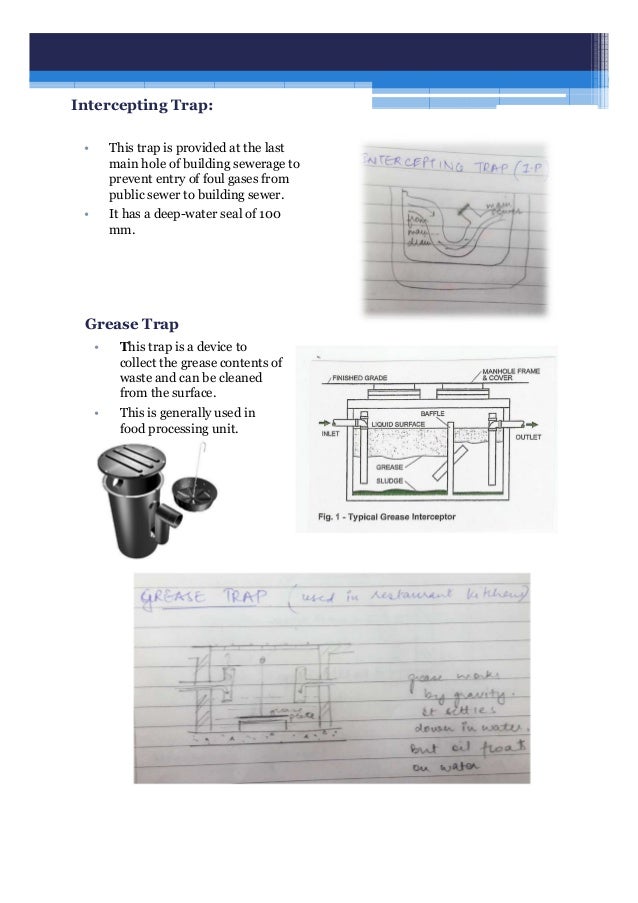 Intercepting Trap:
• This trap is provided at the last
main hole of building sewerage to
prevent entry of foul gases from
public sewer to building sewer.
• It has a deep-water seal of 100
mm.
INTERCEPTING TRAP (I.P)
from
main
drain
main
sewer
Grease Trap
• This trap is a device to
collect the grease contents of
waste and can be cleaned
from the surface.
• This is generally used in
food processing unit.
FINISHED GRADE
MANHOLE FRAME
& COVER
BAFFLE
INLET
LIQUID SURFACE
OUTLET
GREASE
SLUDGE
Fig. 1 - Typical Grease Interceptor
GREASE TRAP (used in restaurant kitchens)
grease
plate
grease works
by gravity.
It settles
down in water.
But oil floats
on water